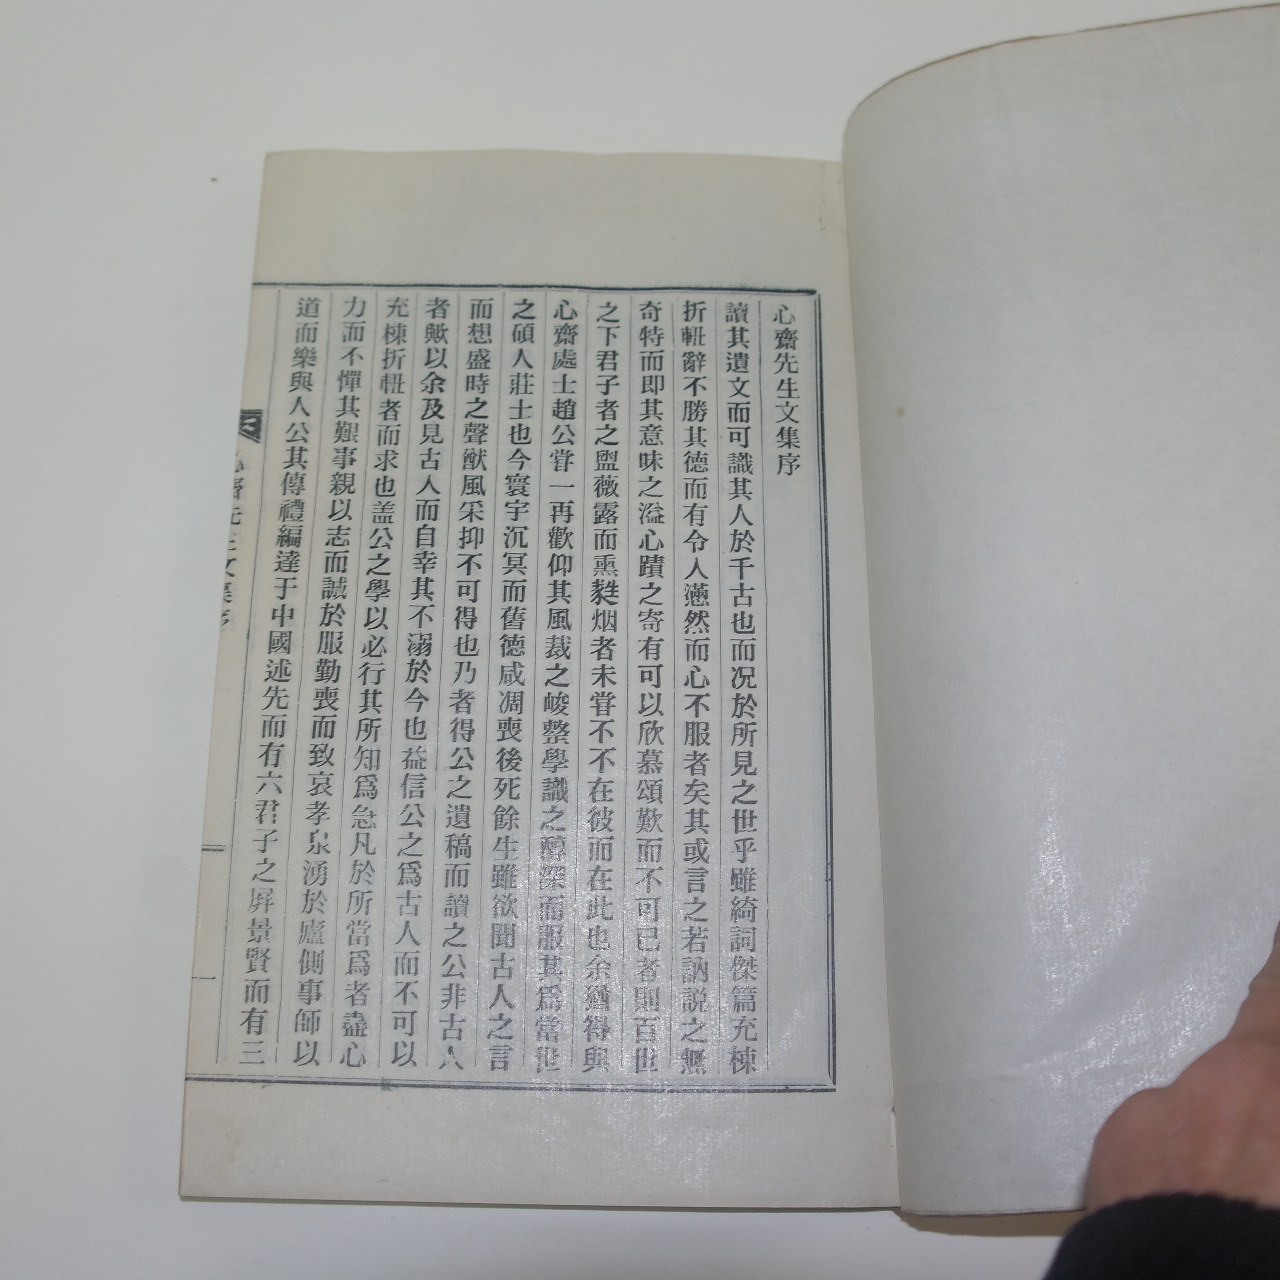 心齋先生文集序
讀其遺文而可識其人於千古也而况於所見之世乎雖綺詞傑篇充棟
折軐辭不勝其德而有令人懣然而心不服者矣其或言之若訥説之無
奇特而即其意味之溢心蹟之寄有可以欣慕頌歎而不可已者則百世
之下君子者之盥薇露而熏㲋烟者未甞不不在彼而在此也余猶得與
心齋處士趙公甞一再歡仰其風裁之峻整學識之醇深而服其爲當世
之碩人莊士也今寰宇沉冥而舊德咸凋喪後死餘生雖欲聞古人之言
而想盛時之聲猷風采抑不可得也乃者得公之遺稿而讀之公非古人
者歟以余及見古人而自幸其不溺於今也益信公之爲古人而不可以
充棟折軐者而求也盖公之學以必行其所知爲急凡於所當爲者盡心
力而不憚其艱事親以志而誠於服勤喪而致哀孝泉湧於廬側事師以
道而樂與人公其傳禮編達于中國述先而有六君子之屛景賢而有三
心齋先生文集序 一